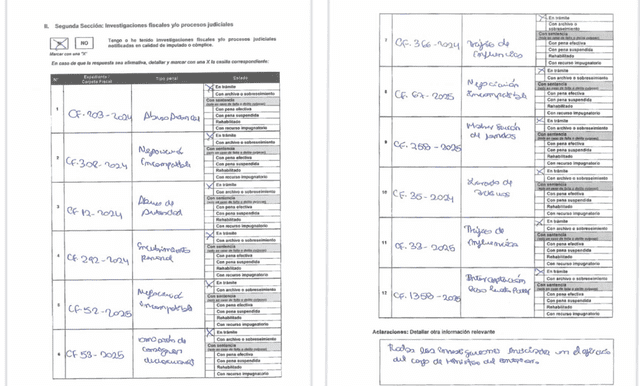 II. Segunda Sección: Investigaciones fiscales y/o procesos judiciales
SI
NO
Tengo o he tenido investigaciones fiscales y/o procesos judiciales
notificadas en calidad de imputado o cómplice.
Marcar con una "X"
En caso de que la respuesta sea afirmativa, detallar y marcar con una X la casilla correspondiente:
N°
Expediente /
Carpeta Fiscal
Tipo penal
Estado
1
CF-203-2024
En trámite
Con archivo o sobreseimiento
Con sentencia
Con pena efectiva
Con pena suspendida
Rehabilitado
Con recurso impugnatorio
2
CF-302-2024
Negociación
Incompatible
En trámite
Con archivo o sobreseimiento
Con sentencia
Con pena efectiva
Con pena suspendida
Rehabilitado
Con recurso impugnatorio
3
CF-12-2024
Abuso de
autoridad
En trámite
Con archivo o sobreseimiento
Con sentencia
Con pena efectiva
Con pena suspendida
Rehabilitado
Con recurso impugnatorio
4
CF-292-2024
Encubrimiento
personal
En trámite
Con archivo o sobreseimiento
Con sentencia
Con pena efectiva
Con pena suspendida
Rehabilitado
Con recurso impugnatorio
5
CF-52-2025
Negociación
Incompatible
En trámite
Con archivo o sobreseimiento
Con sentencia
Con pena efectiva
Con pena suspendida
Rehabilitado
Con recurso impugnatorio
6
CF-53-2025
En trámite
Con archivo o sobreseimiento
Con sentencia
Con pena efectiva
Con pena suspendida
Rehabilitado
Con recurso impugnatorio
7
CF-366-2024
Tráfico de
Influencias
En trámite
Con archivo o sobreseimiento
Con sentencia
Con pena efectiva
Con pena suspendida
Rehabilitado
Con recurso impugnatorio
8
CF-67-2025
Negociación
Incompatible
En trámite
Con archivo o sobreseimiento
Con sentencia
Con pena efectiva
Con pena suspendida
Rehabilitado
Con recurso impugnatorio
9
CF-258-2025
Malversación
de fondos
En trámite
Con archivo o sobreseimiento
Con sentencia
Con pena efectiva
Con pena suspendida
Rehabilitado
Con recurso impugnatorio
10
CF-35-2024
Lavado de
activos
En trámite
Con archivo o sobreseimiento
Con sentencia
Con pena efectiva
Con pena suspendida
Rehabilitado
Con recurso impugnatorio
11
CF-33-2025
Tráfico de
Influencias
En trámite
Con archivo o sobreseimiento
Con sentencia
Con pena efectiva
Con pena suspendida
Rehabilitado
Con recurso impugnatorio
12
CF-1358-2025
En trámite
Con archivo o sobreseimiento
Con sentencia
Con pena efectiva
Con pena suspendida
Rehabilitado
Con recurso impugnatorio
Aclaraciones: Detallar otra información relevante
Todas las investigaciones iniciadas en el ejercicio
del cargo de Ministro del Interior